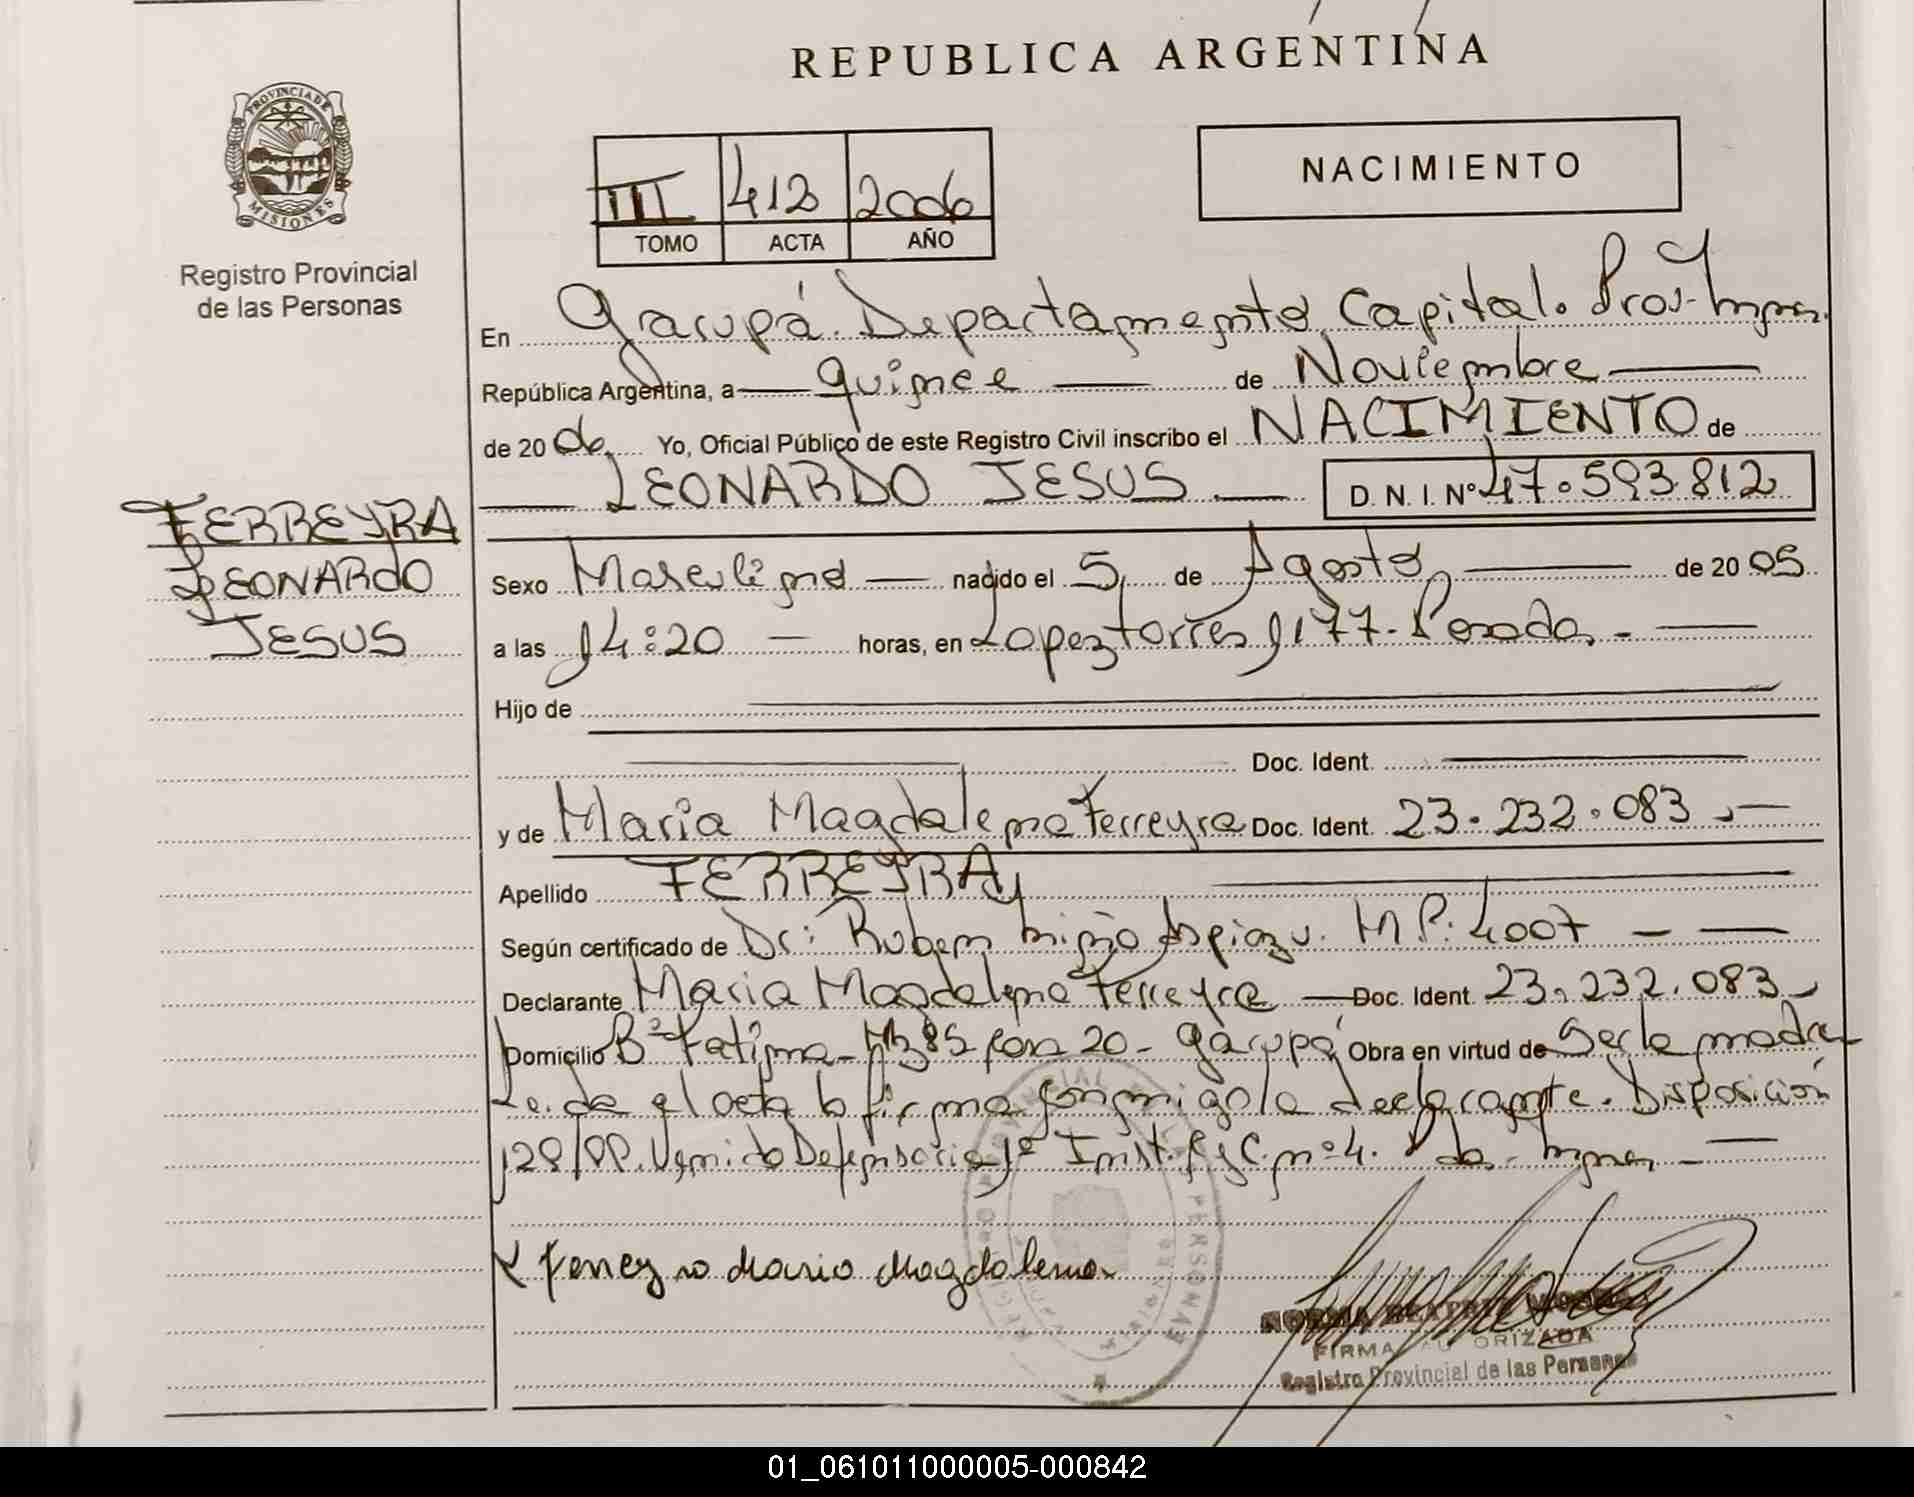 REPUBLICA ARGENTINA
PROVINCIA DE
MISIONES
Registro Provincial
de las Personas
NACIMIENTO
III 412 2006
TOMO ACTA AÑO
En Garupá. Departamento Capital. Prov. Mnes.
República Argentina, a quince de Noviembre
de 2006. Yo, Oficial Público de este Registro Civil inscribo el NACIMIENTO de
LEONARDO JESUS. D. N. I. Nº 47.593.812
FERREYRA
LEONARDO
JESUS
Sexo Masculino nacido el 5 de Agosto de 2005
a las 14:20 horas, en Lopez torres 1177. Posadas.
Hijo de
Doc. Ident.
y de Maria Magdalena Ferreyra Doc. Ident. 23.232.083
Apellido FERREYRA
Según certificado de Dr: Ruben M.P: 4007
Declarante Maria Magdalena Ferreyra Doc. Ident. 23.232.083
Domicilio Bº Fatima - Mz 85 casa 20 - Garupá Obra en virtud de Ser la madre
Leida el acta la firma conmigo la declarante. Disposición
128/00. Defensoria 1º Inst. nº 4. Pdas. Mnes.
Ferreyra Maria Magdalena
NORMA BEATRIZ
FIRMA AUTORIZADA
Registro Provincial de las Personas
01_061011000005-000842